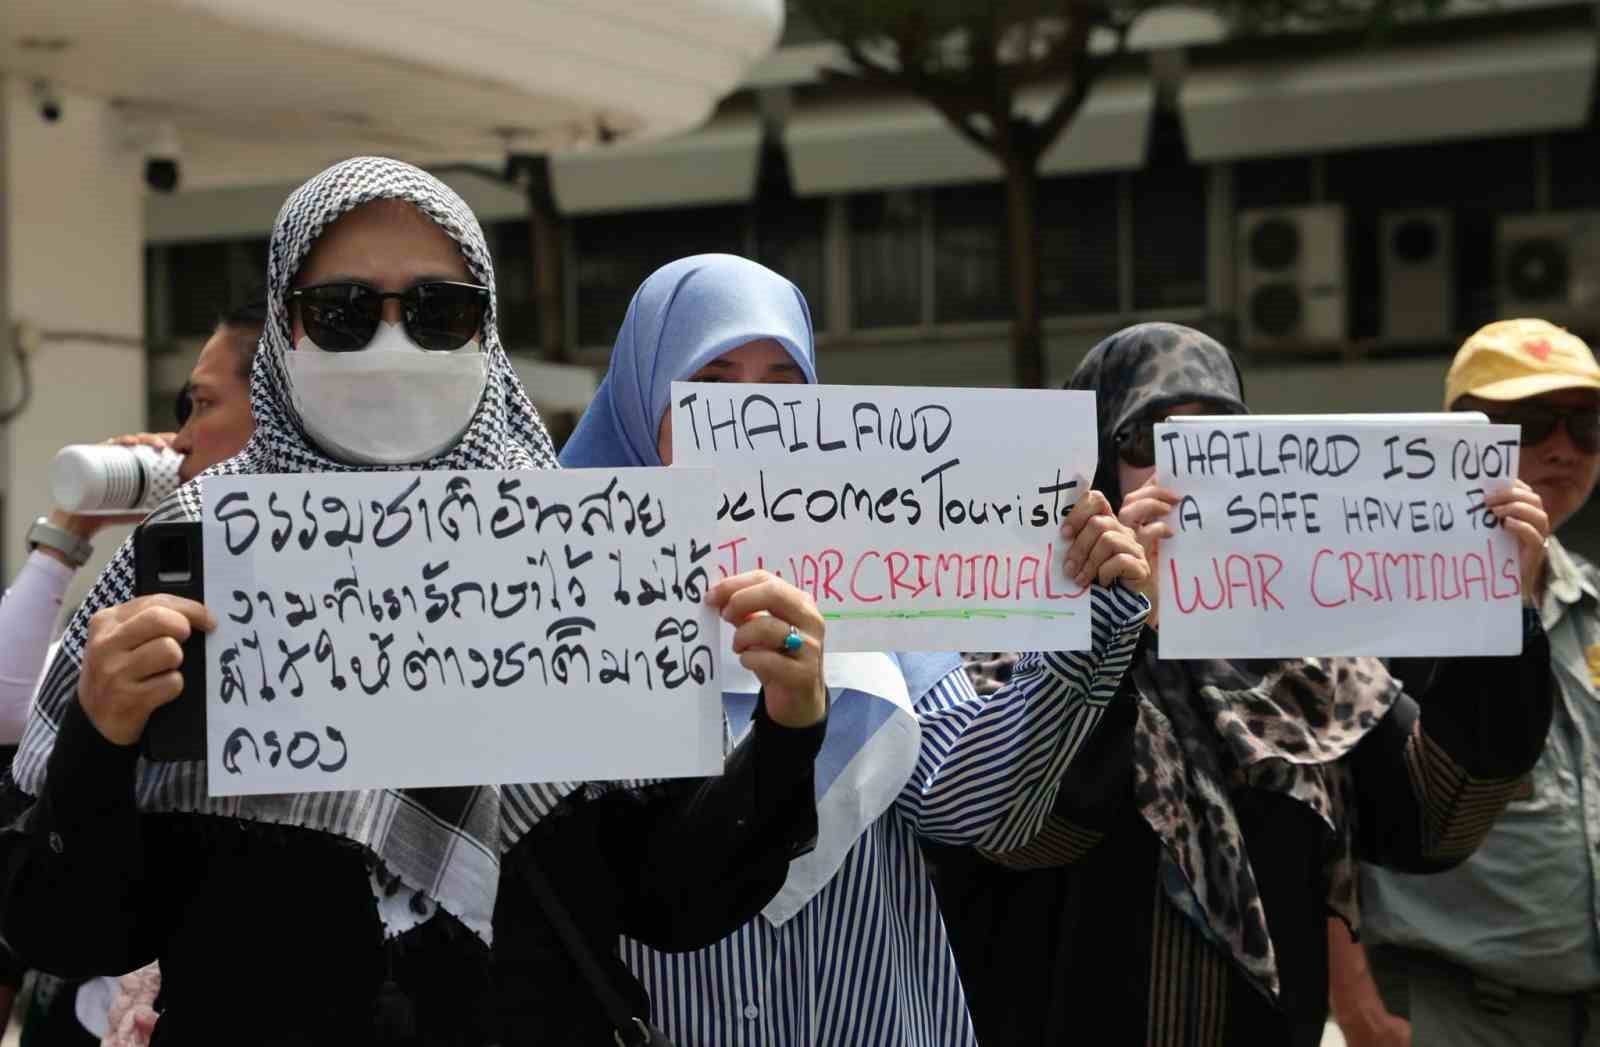 ธรรมชาติอันสวย
งามที่เรารักษาไว้ ไม่ได้
มีไว้ให้ต่างชาติมายึด
ครอง
THAILAND
welcomes Tourists
WAR CRIMINALS
THAILAND IS NOT
A SAFE HAVEN FOR
WAR CRIMINALS